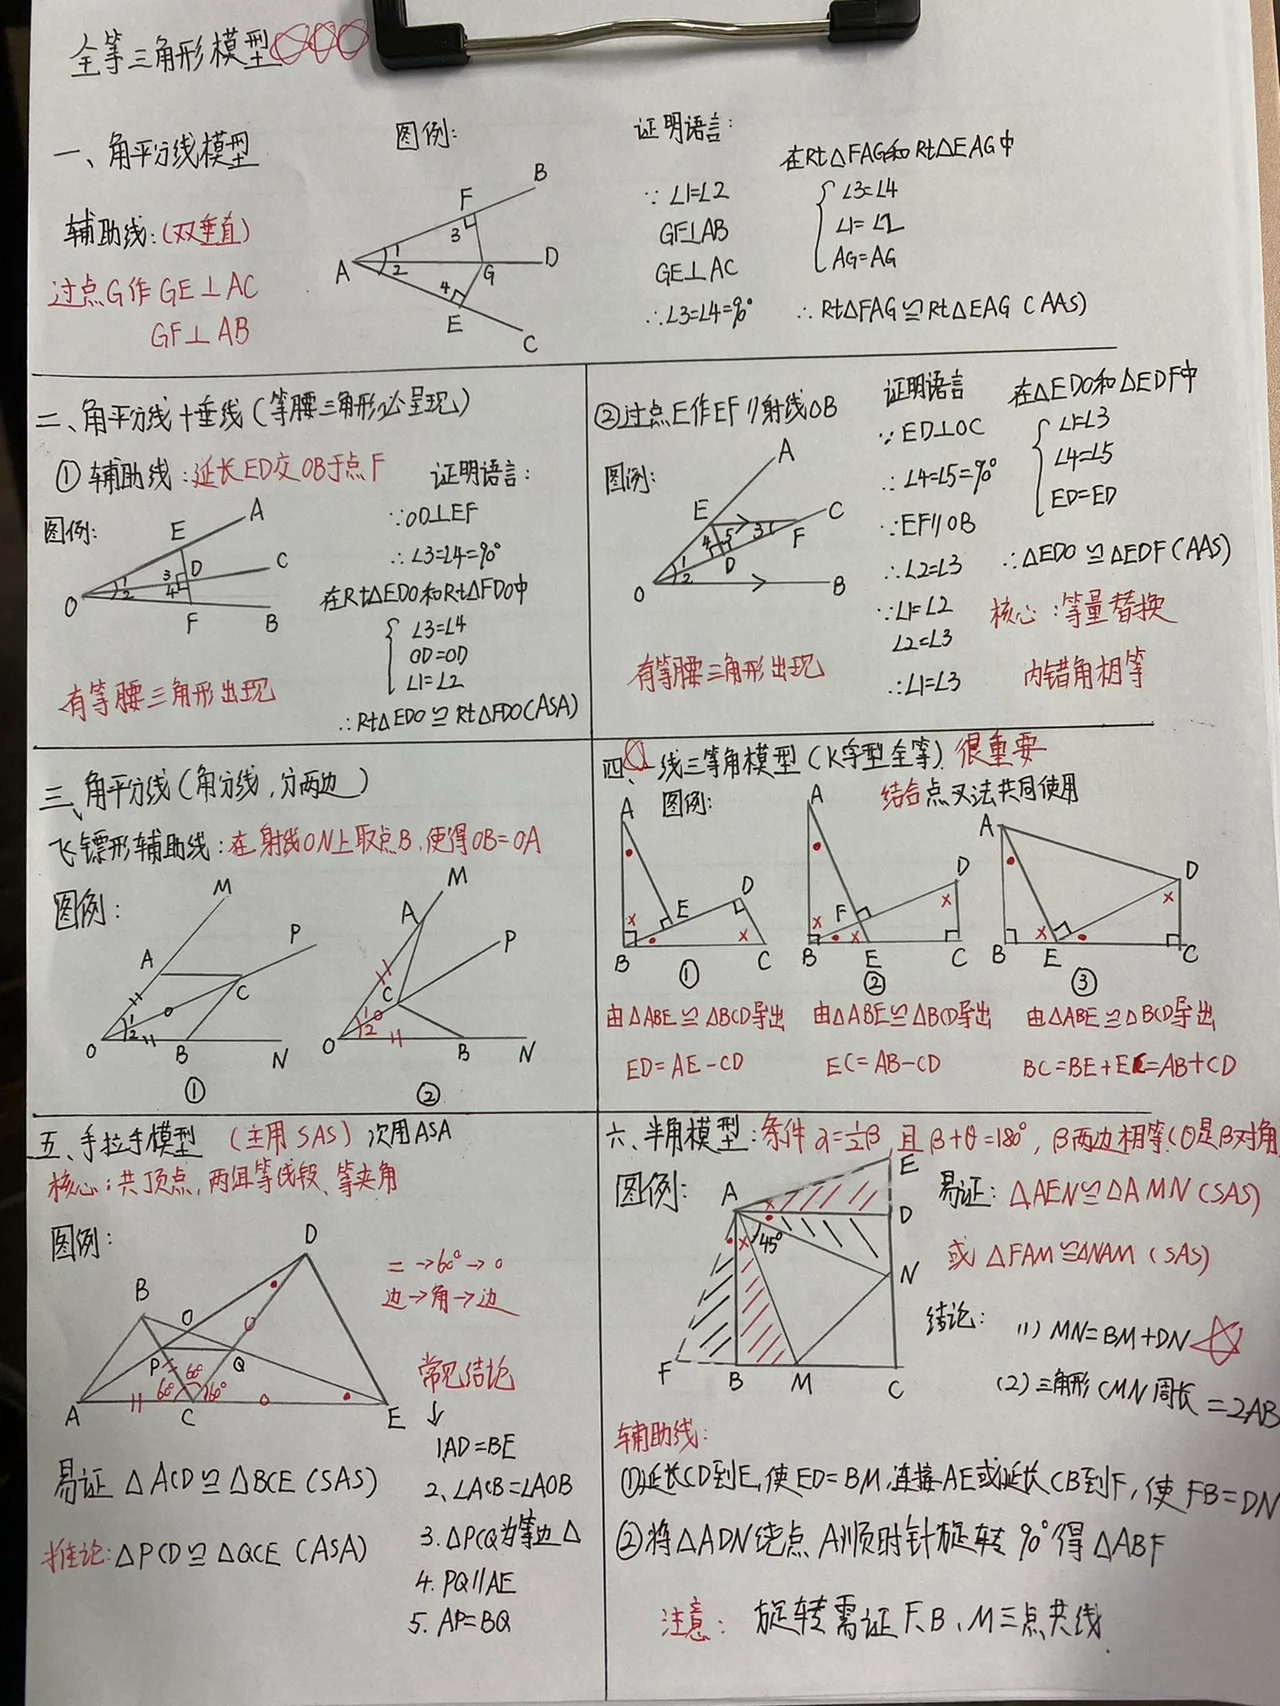 全等三角形模型
一、角平分线模型
辅助线:(双垂直)
过点G作 GE⊥AC
GF⊥AB
图例:
A
B
C
D
E
F
G
1
2
3
4
证明语言:
∵ ∠1=∠2
GF⊥AB
GE⊥AC
∴∠3=∠4=90°
在Rt△FAG和Rt△EAG中
∠3=∠4
∠1=∠2
AG=AG
∴ Rt△FAG≌Rt△EAG (AAS)
二、角平分线十垂线(等腰三角形必呈现)
① 辅助线:延长ED交OB于点F
图例:
O
A
B
C
D
E
F
1
2
3
4
有等腰三角形出现
证明语言:
∵OD⊥EF
∴∠3=∠4=90°
在Rt△EDO和Rt△FDO中
∠3=∠4
OD=OD
∠1=∠2
∴Rt△EDO≌Rt△FDO(ASA)
②过点E作EF//射线OB
图例:
O
A
B
C
D
E
F
1
2
3
4
5
有等腰三角形出现
证明语言
∵ED⊥OC
∴∠4=∠5=90°
∵EF//OB
∴∠2=∠3
∵∠1=∠2
∠2=∠3
∴∠1=∠3
在△EDO和△EDF中
∠1=∠3
∠4=∠5
ED=ED
∴△EDO≌△EDF(AAS)
核心:等量替换
内错角相等
三、角平分线(角分线,分两边)
飞镖形辅助线:在射线ON上取点B,使得OB=OA
图例:
M
A
P
C
1
2
O
B
N
①
M
A
P
C
1
2
O
B
N
②
四、一线三等角模型(K字型全等) 很重要
图例:
结合点叉法共同使用
A
B
C
D
E
①
A
B
C
D
E
F
②
A
B
C
D
E
③
由△ABE≌△BCD导出
ED=AE-CD
由△ABE≌△BCD导出
EC=AB-CD
由△ABE≌△BCD导出
BC=BE+EC=AB+CD
五、手拉手模型 (主用SAS) 次用ASA
核心:共顶点,两组等线段、等夹角
图例:
D
B
O
P
Q
60°
60°
60°
A
C
E
=→60°→○
边→角→边
常见结论
↓
1.AD=BE
2、∠ACB=∠AOB
3.△PCQ为等边△
4. PQ//AE
5. AP=BQ
易证 △ACD≌△BCE(SAS)
推论:△PCD≌△QCE(ASA)
六、半角模型:条件 α=½β,且β+θ=180°,β两边相等(θ是β对角
图例:
A
E
D
45°
N
F
B
M
C
易证: △AEN≌△AMN(SAS)
或 △FAM≌△NAM (SAS)
结论:
(1) MN=BM+DN
(2)三角形CMN周长=2AB
辅助线:
①延长CD到E,使ED=BM,连接AE或延长CB到F,使FB=DN
②将△ADN绕点A顺时针旋转90°得△ABF
注意: 旋转需证F、B、M三点共线